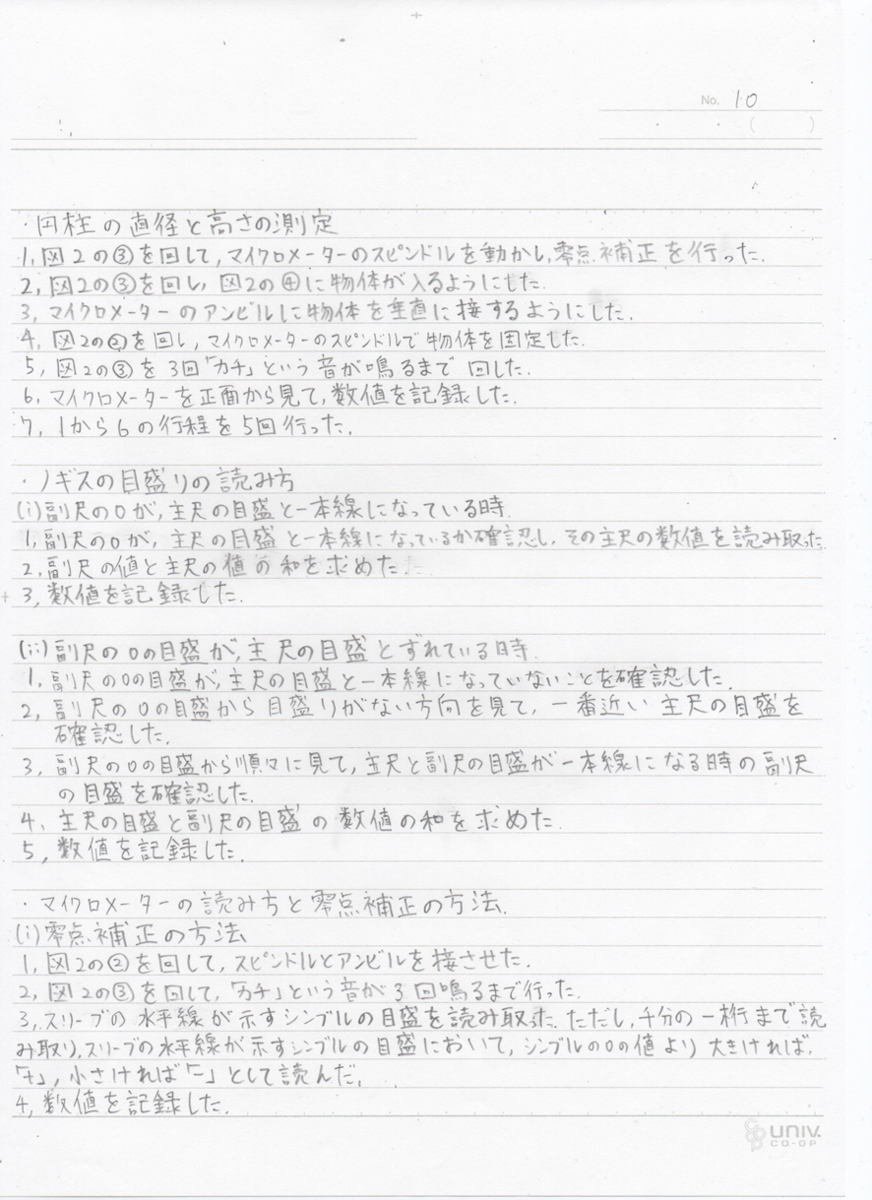 No. 10
( )
・円柱の直径と高さの測定
1, 図2の③を回して,マイクロメーターのスピンドルを動かし,零点補正を行った.
2, 図2の③を回し, 図2の④に物体が入るようにした.
3, マイクロメーターのアンビルに物体を垂直に接するようにした.
4, 図2の②を回し,マイクロメーターのスピンドルで物体を固定した.
5, 図2の③を3回「カチ」という音が鳴るまで回した.
6, マイクロメーターを正面から見て,数値を記録した.
7, 1から6の行程を5回行った.
・ノギスの目盛りの読み方
(i)副尺の0が,主尺の目盛と一本線になっている時.
1, 副尺の0が, 主尺の目盛と一本線になっているか確認し,その主尺の数値を読み取った.
2, 副尺の値と主尺の値の和を求めた.
3, 数値を記録した.
(ii)副尺の0の目盛が,主尺の目盛とずれている時.
1, 副尺の0の目盛が,主尺の目盛と一本線になっていないことを確認した.
2, 副尺の0の目盛から目盛りがない方向を見て, 一番近い主尺の目盛を
確認した.
3, 副尺の0の目盛から順々に見て,主尺と副尺の目盛が一本線になる時の副尺
の目盛を確認した.
4, 主尺の目盛と副尺の目盛の数値の和を求めた.
5, 数値を記録した.
・マイクロメーターの読み方と零点補正の方法.
(i)零点補正の方法
1, 図2の②を回して,スピンドルとアンビルを接させた.
2, 図2の③を回して,「カチ」という音が3回鳴るまで行った.
3, スリーブの水平線が示すシンブルの目盛を読み取った.ただし,千分の一桁まで読
み取り,スリーブの水平線が示すシンブルの目盛において,シンブルの0の値より大きければ,
「+」,小さければ「-」として読んだ.
4, 数値を記録した.
UNIV.
CO-OP